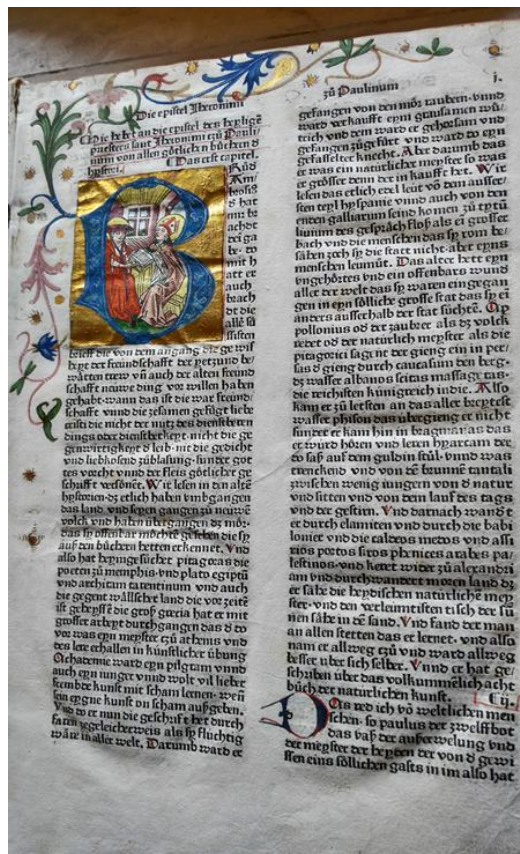 Die epistel Iheronimi
zů Paulinum
j.
Die hebt an die epistel des heyligē
priesters sant Iheronimi zů Pauli
num von allen götlichen büchern d̄
hystori. Das erst capitel.
Růd
Am
brosiꝰ
d̄ hat
mir
bracht
dei ga
be
mit
hatt er
auch
bracht
die
alle
brieff die von dem anfang die ge wiß
heyt der freundschafft der yetzund be/
wärten trew vn̄ auch der alten freund
schafft neuwe ding vor willen haben
gehabt. wann das ist die war freund/
schafft vnnd die zesamen gefügt liebe
cristi die nicht der nutz des diensthren
dings oder dienstherkeyt. nicht die ge
genwirtigkeyt d̄ leib. nit die gedicht
vnd liebkosend züblasung. sunder got
tes vorcht vnnd der fleis götlicher ge
schrifft versönet. Wir lesen in den altē
hystorien. dz etlich haben vmbgangen
das land. vnd seyen gangen zů neuwē
volck vnd haben übergangen dz mör.
das sy offenbar möchtē gesehen die sy
auß den büchern hetten erkennet. Vnd
also hat heymgesuchet pitagoras die
poeten zů memphis. vnd plato egiptū
vnd architam tarentinum vnd auch
die gegent wällscher land die vor zeitē
ist geheyssē die groß grecia hat er mit
grosser arbeyt durchgangen das d̄ do
vor was eyn meyster czů athenis vnd
des lere erhallen in künstlicher übung
Achademie ward eyn pilgram vnnd
auch eyn iunger vnnd wolt vil lieber
frembde kunst mit scham lernen. weñ
sein eygne kunst on scham außgeben.
Vnd do er nun die geschrift het durch
faren zegeleicherweis als sy flüchtig
wäre in aller welt. Darumb ward er
gefangen von den mör raubern. vnnd
ward verkaufft eym grausamen wü/
trich vnd dem ward er gehorsam vnd
gefangen zügefürt vnd ward do eyn
gefasselter knecht. Aber darumb das
er was ein natürlicher meyster so was
er grösser denn der in kaufft het. Wir
lesen das etlich edel leüt vō dem ausser/
sten teyl hyspanie vnnd auch von den
enden galliarum seind komen zů tytū
liuium des gespräch floß als ei grosser
bach vnd die menschen das sy rom be/
sähen zoch sy die statt nicht. aber eyns
menschen leumūt. Das alter hett eyn
vngehörtes vnd ein offenbars wund
aller der welt das sy waren ein gegan
gen in eyn söllliche grosse stat das sy ei
anders ausserhalb der stat süchtē. Ap
pollonius od̄ der zauber als dz volck
redet od̄ der natürlich meyster als die
pitagorici sagent der gieng ein in per/
sas d̄ gieng durch caucasum den berg.
dz wasser albanos scitas massage tas.
die reichisten künigreich indie. Also
kam er zů letsten an das aller breytest
wasser phison das übergieng er nicht
sunder er kam hin in bragmanas das
er würd hören vnd leren hyarcam der
do saß auf dem guldin stůl. vnnd was
trenckend vnd von dē brunnē tantali
zwischen wenig iungern von d̄ natur
vnd sitten vnd von dem lauf des tags
vnd der gestirn. Vnd darnach wand̄t
er durch elamiten vnd durch die babi
lonier vnd die caldeos metos vnd assi
rios partos siros phenices arabes pa/
lestinos. vnd keret wider zů alexandri
am vnd durchwandert moren land dz
er sähe die heydnischen natürlichē mey
ster. vnd den verleumtisten tisch der sū
nen sähe in dē sand. Vnd fand der man
an allen stetten das er lernet. vnd also
nam er allweg zů vnd ward allweg
besser über sich selber. Vnnd er hat ge/
schriben über das volkummēlich acht
büch der natürlichen kunst. C ij.
Das red ich vō weltlichen men
schen. so paulus der zwelffbot
das vaß der außerwelung vnd
der meyster der heyden der von d̄ gewi
ssen eins söllichen gasts in im also hat